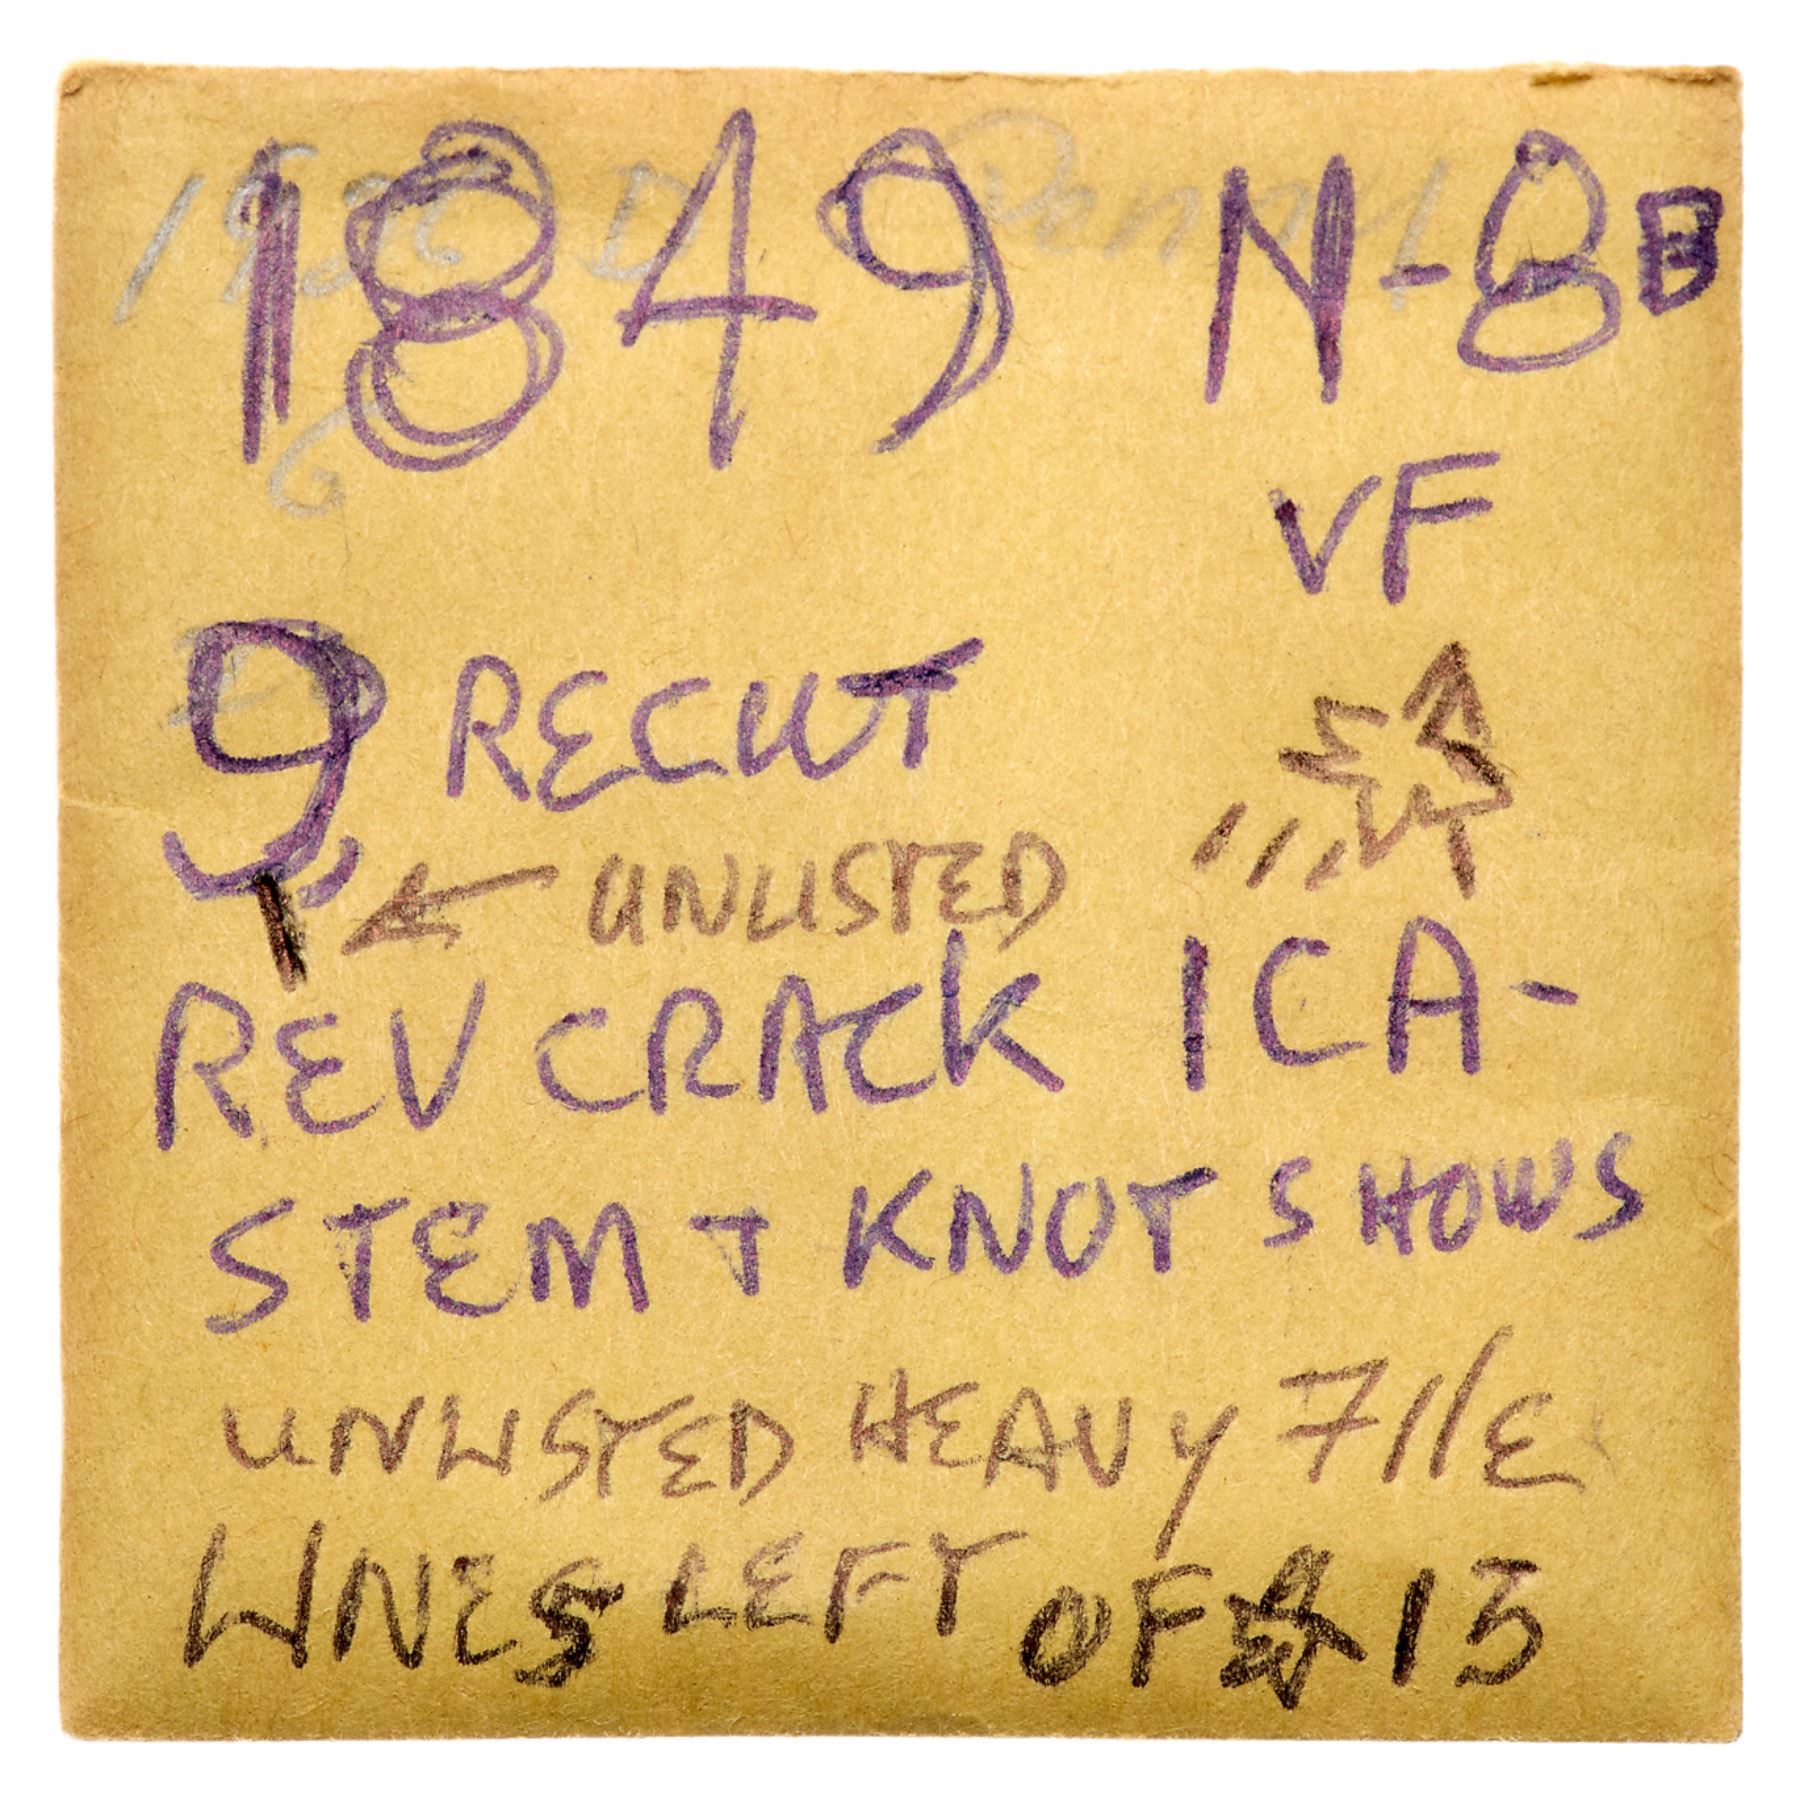 1849 N-8 B
VF
9 RECUT
← UNLISTED
REV CRACK ICA-
STEM + KNOT SHOWS
UNLISTED HEAVY FILE
LINES LEFT OF ☆ 13